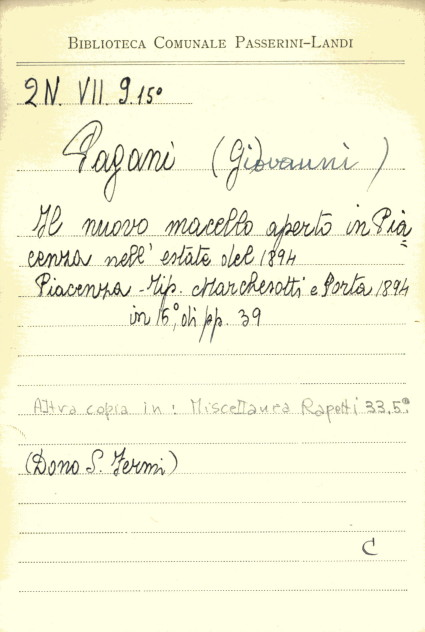 BIBLIOTECA COMUNALE PASSERINI-LANDI
2N. VII. 9.15°
Pagani (Giovanni)
Il nuovo macello aperto in Pia
cenza nell' estate del 1894
Piacenza - Tip. Marchesotti e Porta 1894
in 15°, di pp. 39
Altra copia in: Miscellanea Rapetti 33.5°
(Dono S. Fermi)
C